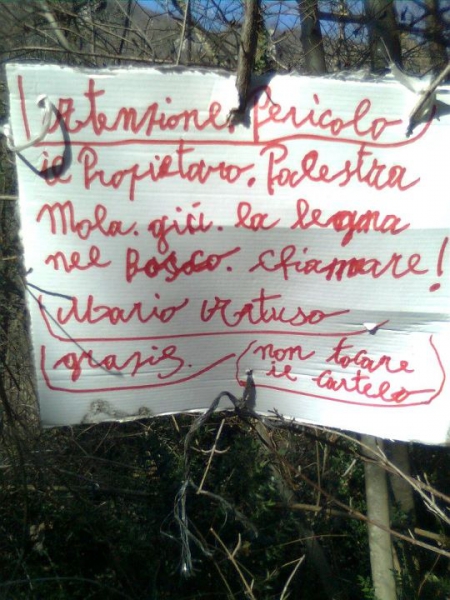 Atenzione. Pericolo
il Propietaro. Palestra
Mola. giù. la legna
nel Bosco. chiamare!
Mario Artuso
grazie.
non tocare
il cartelo